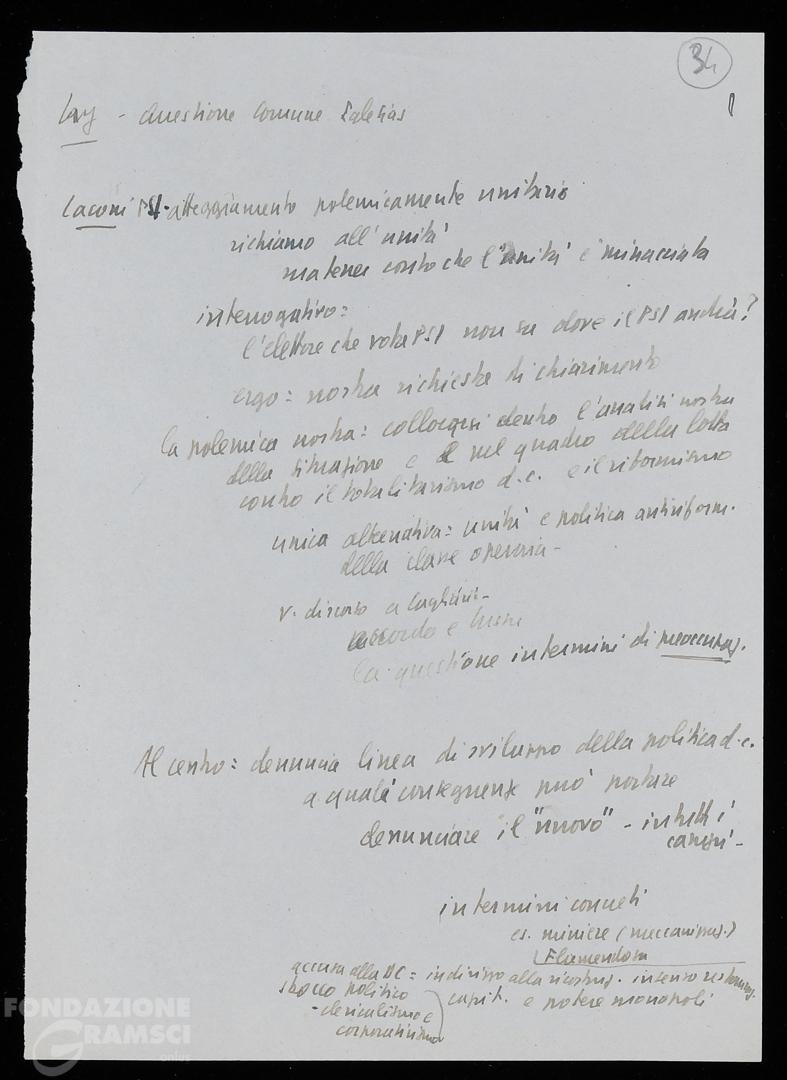 34
Lay - Questione Comune Iglesias
Laconi PSI - atteggiamento polemicamente unitario
richiamo all'unità
tener conto che l'unità è minacciata
interrogativo:
l'elettore che vota PSI non sa dove il PSI andrà?
ergo: nostra richiesta di chiarimento
la polemica nostra: collocarsi dentro l'analisi nostra
della situazione e nel quadro della lotta
contro il totalitarismo d.c. e il riformismo
unica alternativa: unità e politica antiriform.
della classe operaia -
v. discorso a Cagliari -
accordo e
la questione in termini di preoccupaz.
Al centro: denuncia linea di sviluppo della politica d.c.
a quali conseguenze può portare
denunciare il "nuovo" - in tutti i
campi -
in termini concreti
es. miniere (meccanizzaz.)
Flumendosa
accusa alla DC = indirizzo alla ricostruz. in senso restauraz.
sbocco politico capit. e potere monopoli
- clericalismo e
corporativismo
FONDAZIONE
GRAMSCI
onlus